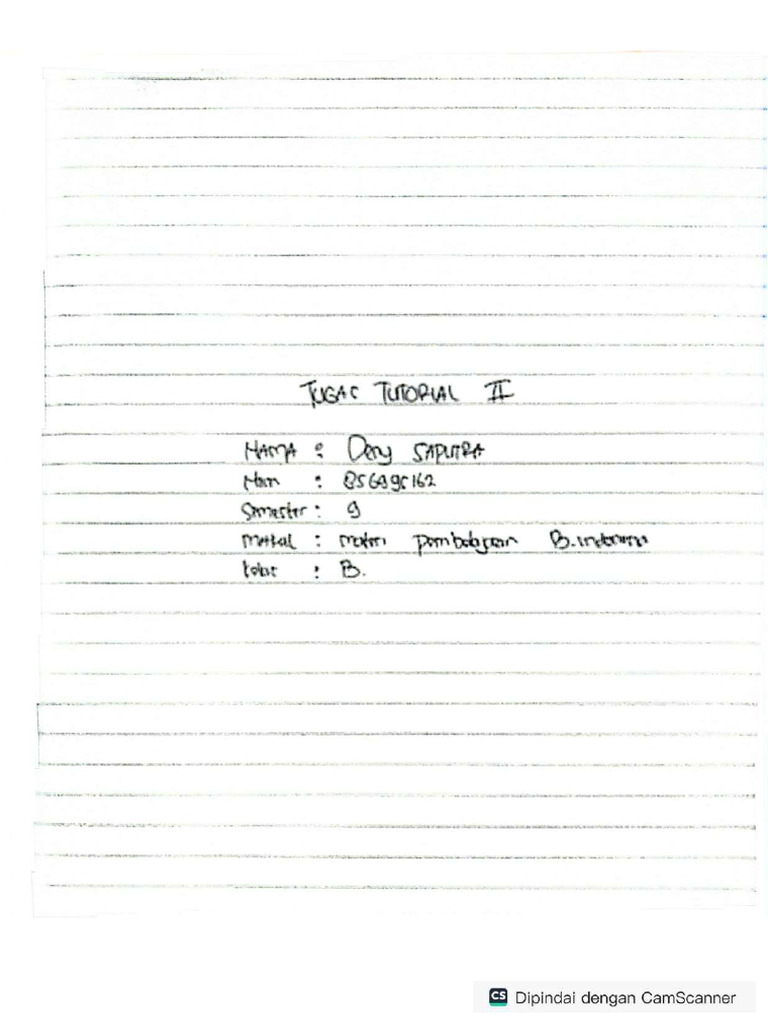 TUGAS TUTORIAL II
NAMA : Deny SAPUTRA
Nim : 856995162
Semester : 9
Matkul : materi pembelajaran B.indonesia
kelas : B.
CS Dipindai dengan CamScanner